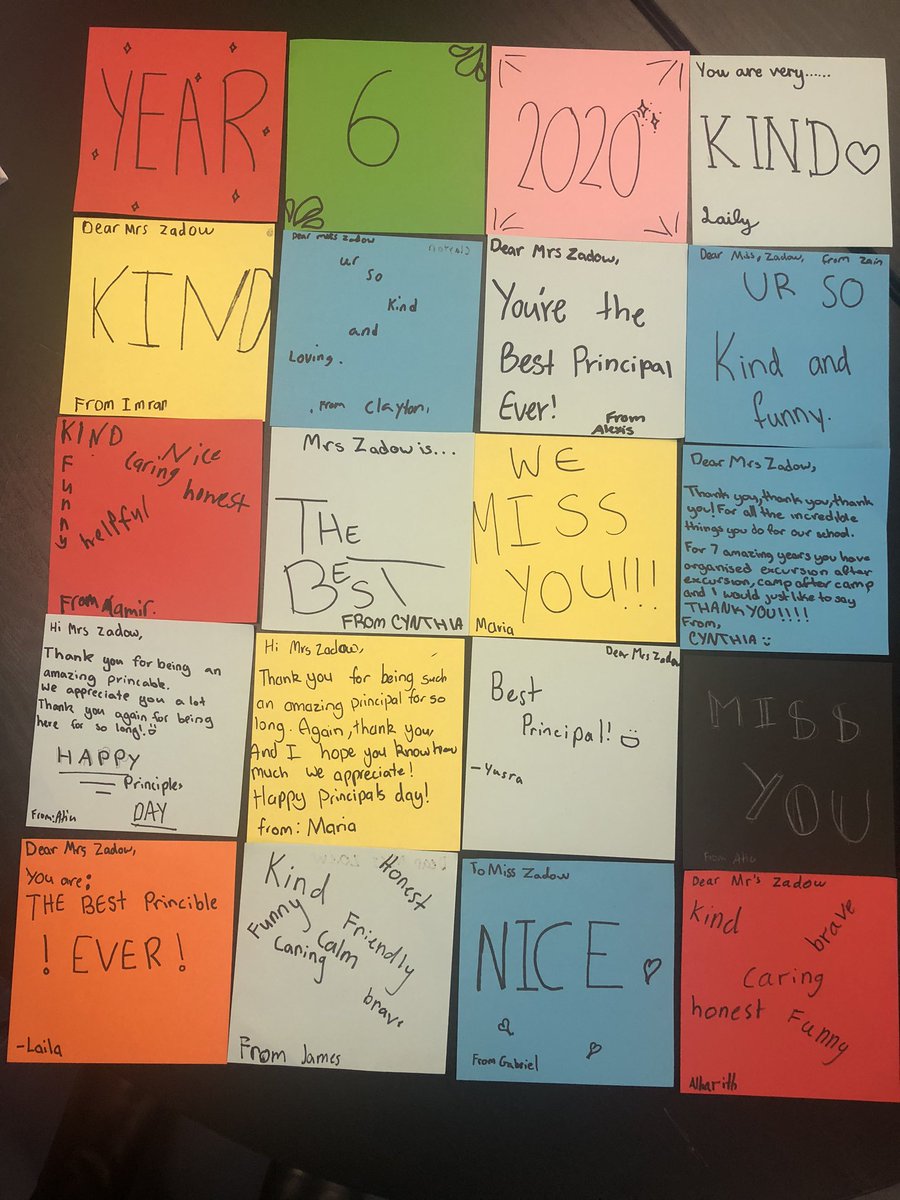 YEAR
6
2020
You are very......
KIND
Laily
Dear Mrs Zadow
KIND
From Imran
Dear mrs zadow
ur
so
kind
and
Loving.
From Clayton,
Dear Mrs Zadow,
You're the
Best Principal
Ever!
From
Alexis
Dear Miss, Zadow, From Zain
UR SO
Kind and
funny.
KIND
Funny
Nice
Caring
honest
helpful
From Aamir.
Mrs Zadow is...
THE
BEST
FROM CYNTHIA
WE
MISS
YOU!!!
Maria
Dear Mrs Zadow,
Thank you, thank you, thank
you! For all the incredible
things you do for our school.
For 7 amazing years you have
organised excursion after
excursion, camp after camp
and I would just like to say
THANK YOU!!!!
From,
CYNTHIA
Hi Mrs Zadow,
Thank you for being an
amazing princable.
We appreciate you a lot
Thank you again for being
here for so long!
HAPPY
Principles
DAY
From:
Hi Mrs Zadow,
Thank you for being such
an amazing principal for so
long. Again, thank you
And I hope you know how
much we appreciate!
Happy Principals day!
from: Maria
Dear Mrs Zadow
Best
Principal!
-Yusra
MISS
YOU
From
Dear Mrs Zadow,
You are:
THE BEST Princible
! EVER !
-Laila
Kind
Honest
Funny
Friendly
Calm
Caring
brave
From James
To Miss Zadow
NICE
From Gabriel
Dear Mr's Zadow
Kind
brave
Caring
honest
Funny
Alharith